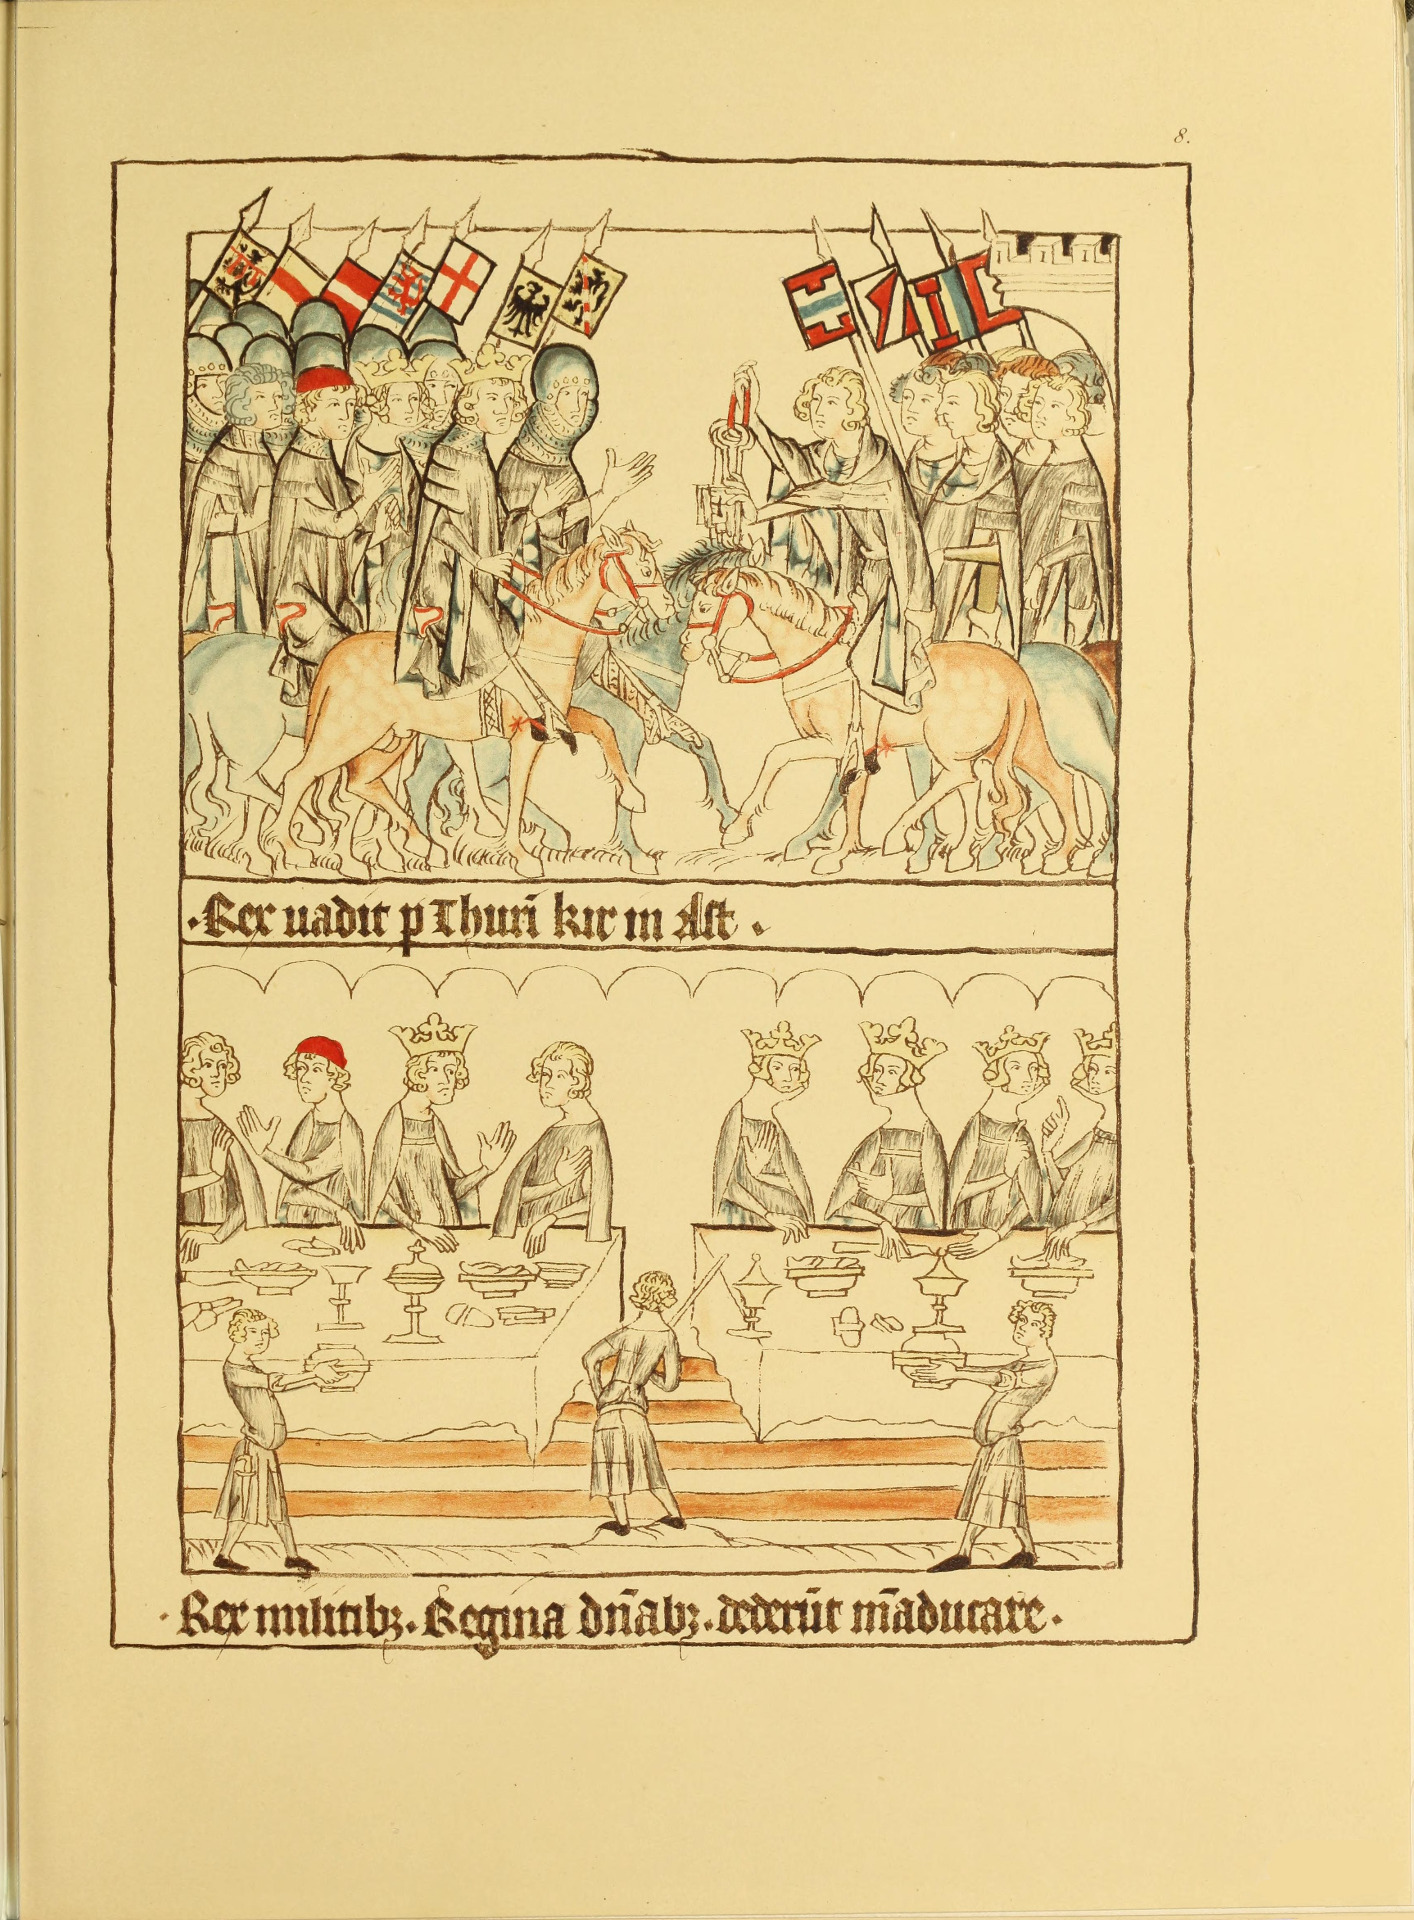 8.
·Rex uadit p Thurī kir in Ast·
·Rex militibꝫ. Regina dn̄abꝫ. dederūt m̄aducare·